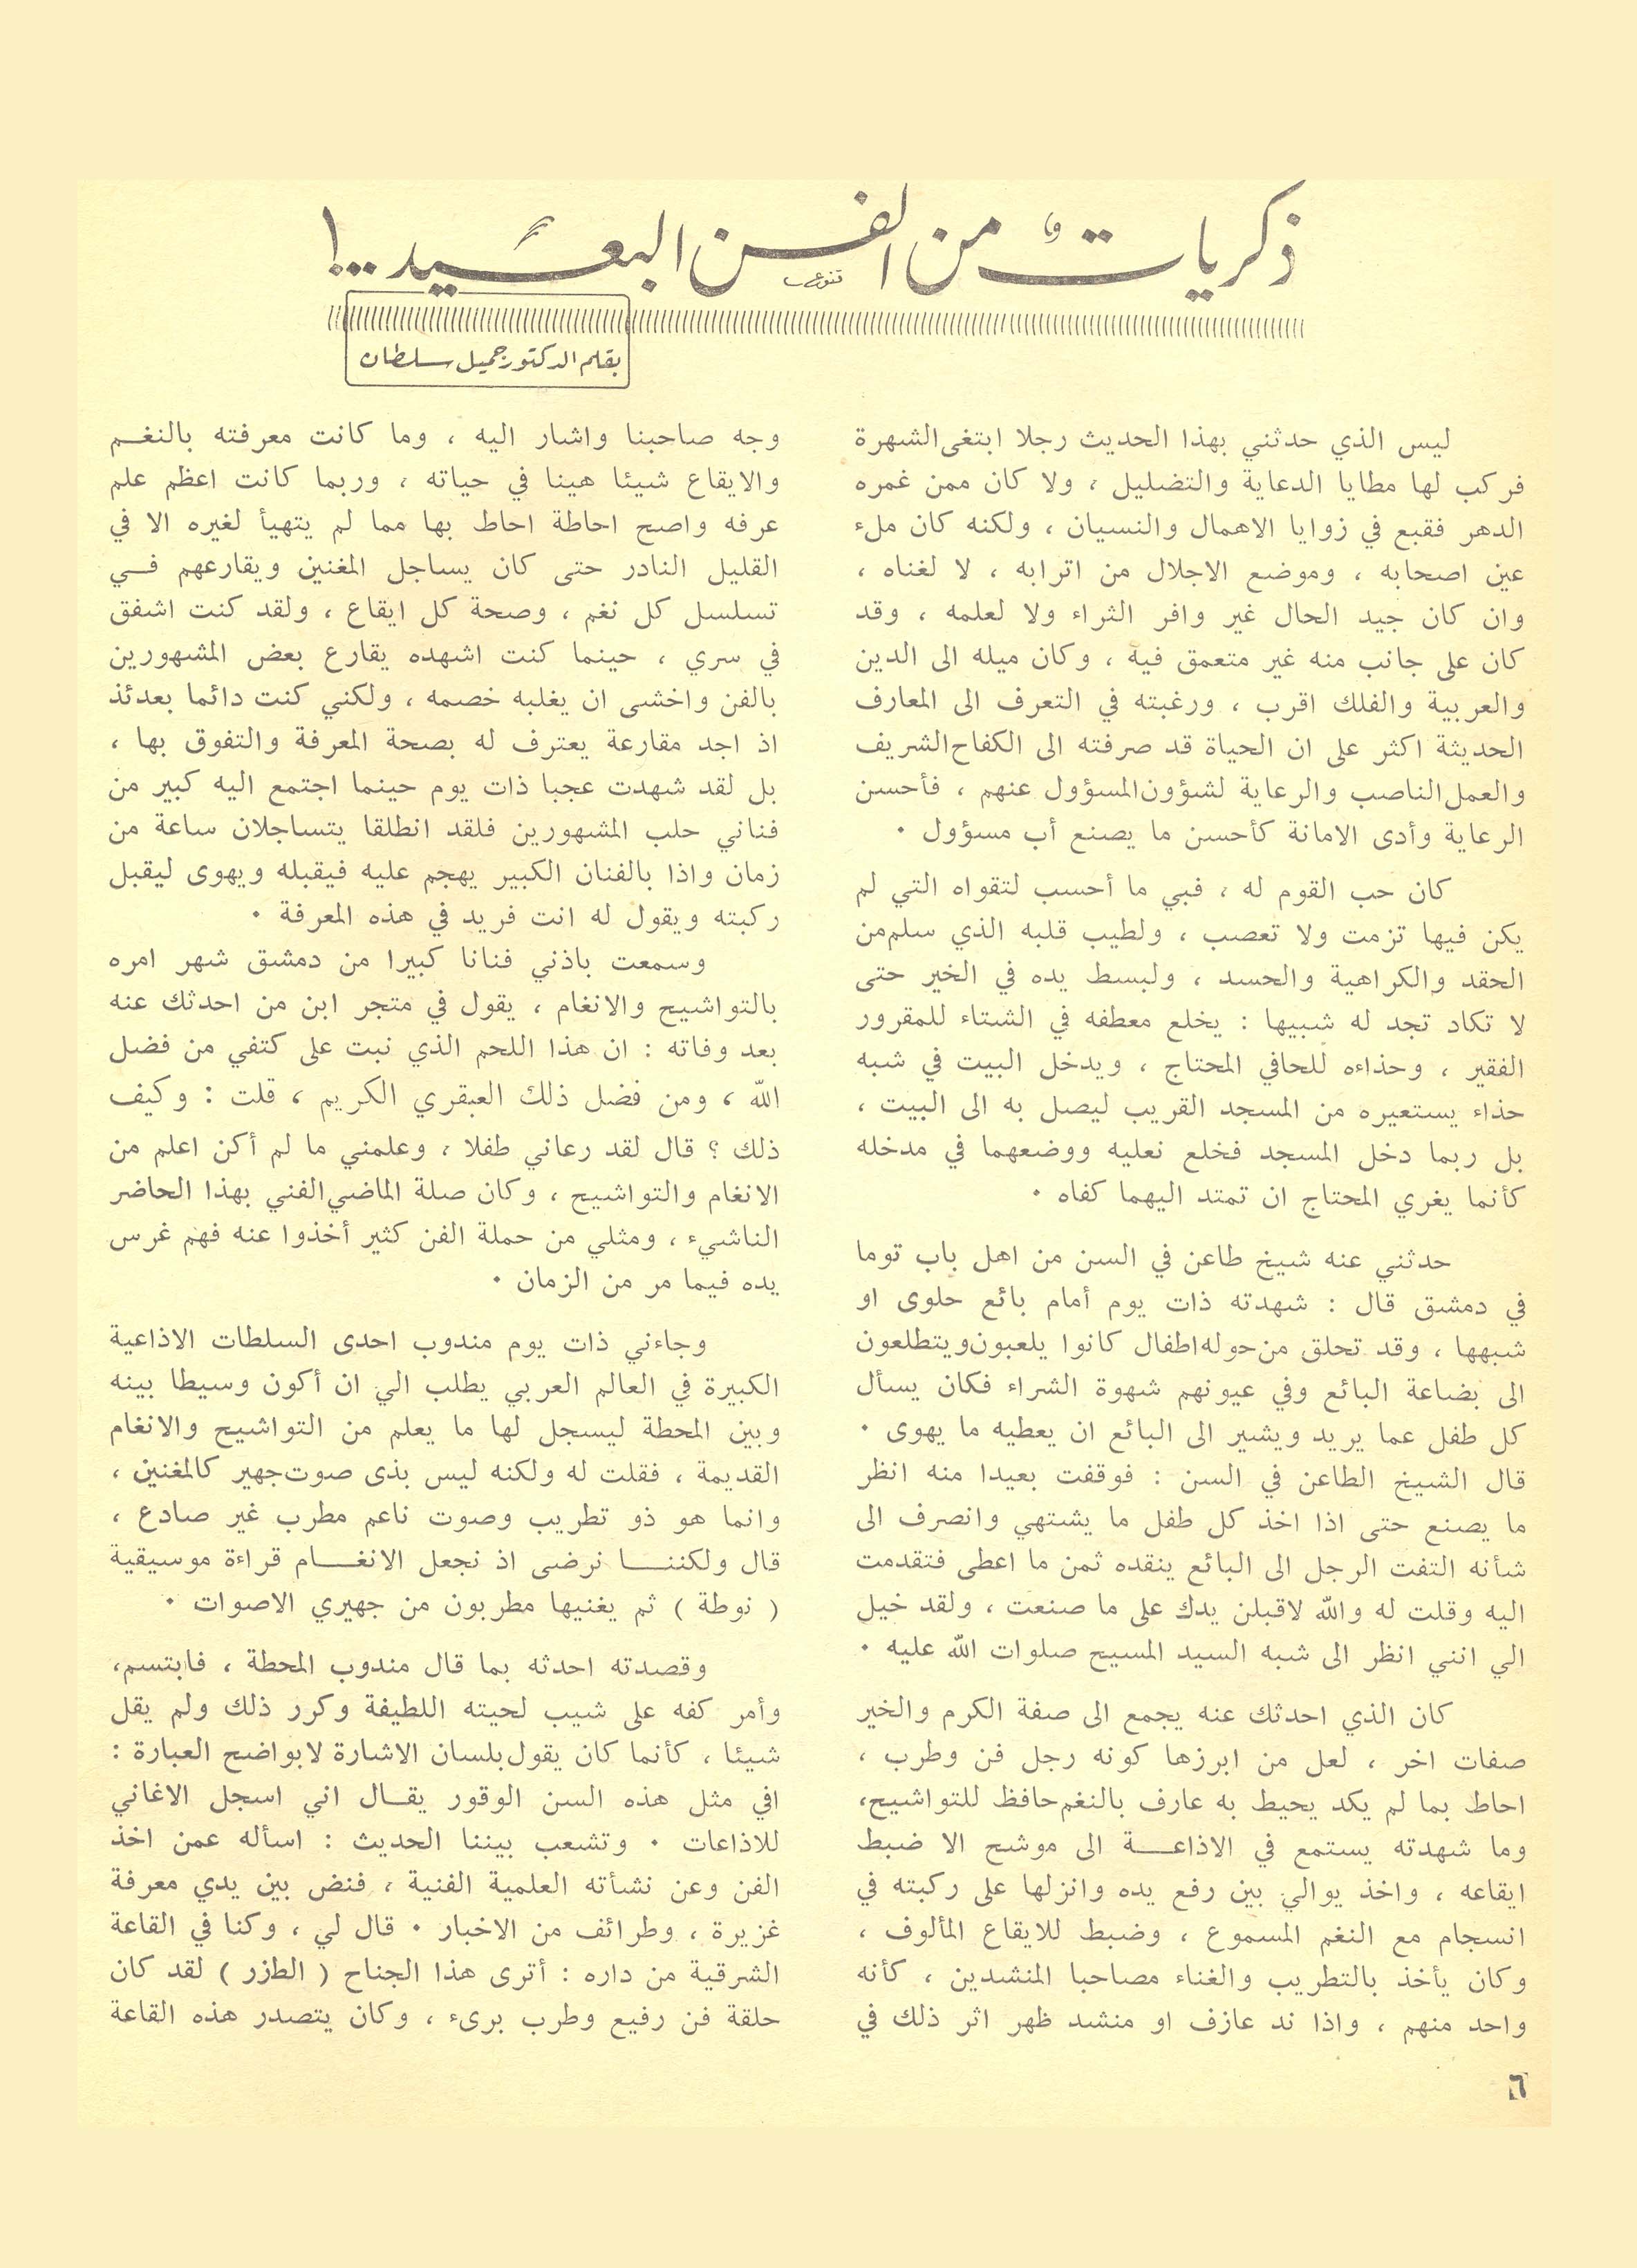 ذكريات من الفن البعيد..!
بقلم الدكتور جميل سلطان
ليس الذي حدثني بهذا الحديث رجلا ابتغى الشهرة
فركب لها مطايا الدعاية والتضليل ، ولا كان ممن غمره
الدهر فقبع في زوايا الاهمال والنسيان ، ولكنه كان ملء
عين اصحابه ، وموضع الاجلال من اترابه ، لا لغناه ،
وان كان جيد الحال غير وافر الثراء ولا لعلمه ، وقد
كان على جانب منه غير متعمق فيه ، وكان ميله الى الدين
والعربية والفلك اقرب ، ورغبته في التعرف الى المعارف
الحديثة اكثر على ان الحياة قد صرفته الى الكفاح الشريف
والعمل الناصب والرعاية لشؤون المسؤول عنهم ، فأحسن
الرعاية وأدى الامانة كأحسن ما يصنع أب مسؤول .
كان حب القوم له ، فبي ما أحسب لتقواه التي لم
يكن فيها تزمت ولا تعصب ، ولطيب قلبه الذي سلم من
الحقد والكراهية والحسد ، ولبسط يده في الخير حتى
لا تكاد تجد له شبيها : يخلع معطفه في الشتاء للمقرور
الفقير ، وحذاءه للحافي المحتاج ، ويدخل البيت في شبه
حذاء يستعيره من المسجد القريب ليصل به الى البيت ،
بل ربما دخل المسجد فخلع نعليه ووضعهما في مدخله
كأنما يغري المحتاج ان تمتد اليهما كفاه .
حدثني عنه شيخ طاعن في السن من اهل باب توما
في دمشق قال : شهدته ذات يوم أمام بائع حلوى او
شبهها ، وقد تحلق من حوله اطفال كانوا يلعبون ويتطلعون
الى بضاعة البائع وفي عيونهم شهوة الشراء فكان يسأل
كل طفل عما يريد ويشير الى البائع ان يعطيه ما يهوى .
قال الشيخ الطاعن في السن : فوقفت بعيدا منه انظر
ما يصنع حتى اذا اخذ كل طفل ما يشتهي وانصرف الى
شأنه التفت الرجل الى البائع ينقده ثمن ما اعطى فتقدمت
اليه وقلت له والله لاقبلن يدك على ما صنعت ، ولقد خيل
الي انني انظر الى شبه السيد المسيح صلوات الله عليه .
كان الذي احدثك عنه يجمع الى صفة الكرم والخير
صفات اخر ، لعل من ابرزها كونه رجل فن وطرب ،
احاط بما لم يكد يحيط به عارف بالنغم حافظ للتواشيح،
وما شهدته يستمع في الاذاعـــة الى موشح الا ضبط
ايقاعه ، واخذ يوالي بين رفع يده وانزلها على ركبته في
انسجام مع النغم المسموع ، وضبط للايقاع المألوف ،
وكان يأخذ بالتطريب والغناء مصاحبا المنشدين ، كأنه
واحد منهم ، واذا ند عازف او منشد ظهر اثر ذلك في
وجه صاحبنا واشار اليه ، وما كانت معرفته بالنغـم
والايقاع شيئا هينا في حياته ، وربما كانت اعظم علم
عرفه واصح احاطة احاط بها مما لم يتهيأ لغيره الا في
القليل النادر حتى كان يساجل المغنين ويقارعهم فـي
تسلسل كل نغم ، وصحة كل ايقاع ، ولقد كنت اشفق
في سري ، حينما كنت اشهده يقارع بعض المشهورين
بالفن واخشى ان يغلبه خصمه ، ولكني كنت دائما بعدئذ
اذ اجد مقارعة يعترف له بصحة المعرفة والتفوق بها ،
بل لقد شهدت عجبا ذات يوم حينما اجتمع اليه كبير من
فناني حلب المشهورين فلقد انطلقا يتساجلان ساعة من
زمان واذا بالفنان الكبير يهجم عليه فيقبله ويهوى ليقبل
ركبته ويقول له انت فريد في هذه المعرفة .
وسمعت باذني فنانا كبيرا من دمشق شهر امره
بالتواشيح والانغام ، يقول في متجر ابن من احدثك عنه
بعد وفاته : ان هذا اللحم الذي نبت على كتفي من فضل
الله ، ومن فضل ذلك العبقري الكريم ، قلت : وكيف
ذلك ؟ قال لقد رعاني طفلا ، وعلمني ما لم أكن اعلم من
الانغام والتواشيح ، وكان صلة الماضي الفني بهذا الحاضر
الناشيء ، ومثلي من حملة الفن كثير أخذوا عنه فهم غرس
يده فيما مر من الزمان .
وجاءني ذات يوم مندوب احدى السلطات الاذاعية
الكبيرة في العالم العربي يطلب الي ان أكون وسيطا بينه
وبين المحطة ليسجل لها ما يعلم من التواشيح والانغام
القديمة ، فقلت له ولكنه ليس بذى صوت جهير كالمغنين ،
وانما هو ذو تطريب وصوت ناعم مطرب غير صادع ،
قال ولكننـــا نرضى اذ نجعل الانغــام قراءة موسيقية
( نوطة ) ثم يغنيها مطربون من جهيري الاصوات .
وقصدته احدثه بما قال مندوب المحطة ، فابتسم،
وأمر كفه على شيب لحيته اللطيفة وكرر ذلك ولم يقل
شيئا ، كأنما كان يقول بلسان الاشارة لا بواضح العبارة :
افي مثل هذه السن الوقور يقـال اني اسجل الاغاني
للاذاعات . وتشعب بيننا الحديث : اسأله عمن اخذ
الفن وعن نشأته العلمية الفنية ، فنض بين يدي معرفة
غزيرة ، وطرائف من الاخبار . قال لي ، وكنا في القاعة
الشرقية من داره : أترى هذا الجناح ( الطزر ) لقد كان
حلقة فن رفيع وطرب برىء ، وكان يتصدر هذه القاعة
٦